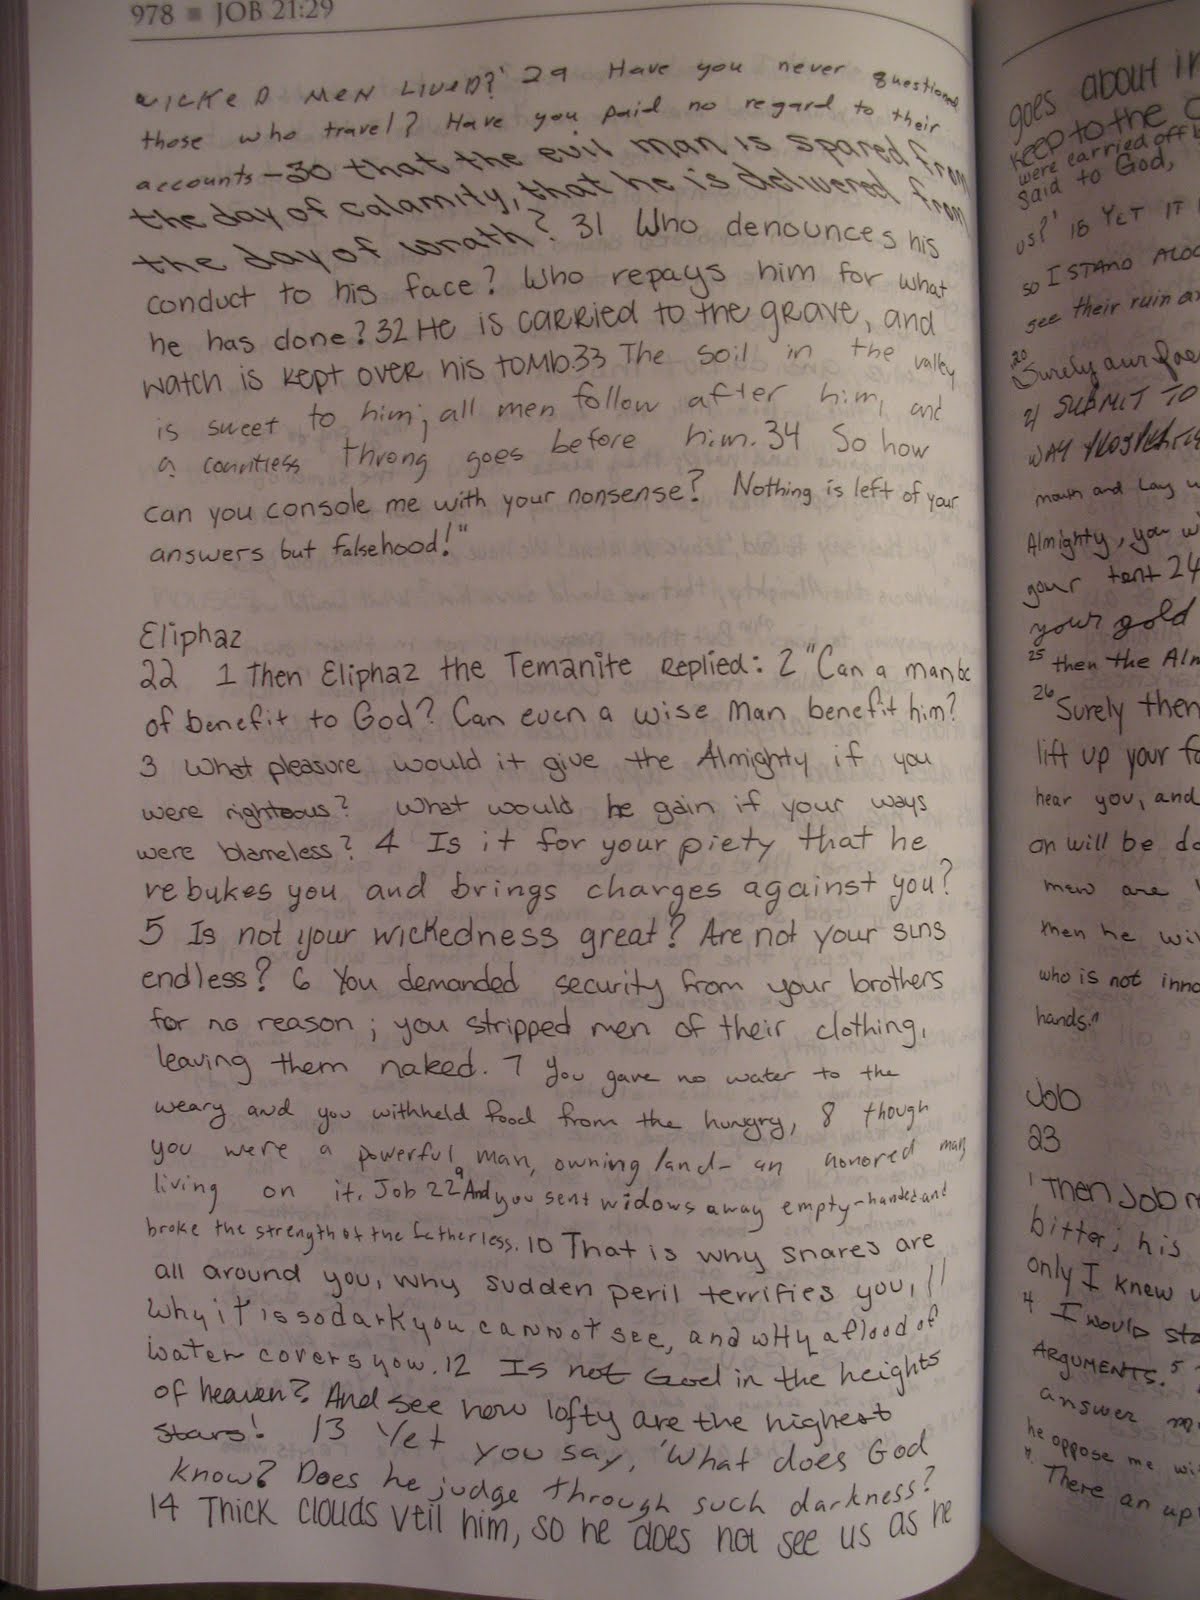 978 ■ JOB 21:29
WICKED MEN LIVED?' 29 Have you never questioned
those who travel? Have you paid no regard to their
accounts - 30 that the evil man is spared from
the day of calamity, that he is delivered from
the day of wrath? 31 Who denounces his
conduct to his face? Who repays him for what
he has done? 32 He is carried to the grave, and
watch is kept over his tomb. 33 The soil in the valley
is sweet to him; all men follow after him, and
a countless throng goes before him. 34 So how
can you console me with your nonsense? Nothing is left of your
answers but falsehood!"
Eliphaz
22 1 Then Eliphaz the Temanite replied: 2 "Can a man be
of benefit to God? Can even a wise man benefit him?
3 What pleasure would it give the Almighty if you
were righteous? What would he gain if your ways
were blameless? 4 Is it for your piety that he
rebukes you and brings charges against you?
5 Is not your wickedness great? Are not your sins
endless? 6 You demanded security from your brothers
for no reason; you stripped men of their clothing,
leaving them naked. 7 You gave no water to the
weary and you withheld food from the hungry, 8 though
you were a powerful man, owning land - an honored man,
living on it. Job 22 9 And you sent widows away empty-handed and
broke the strength of the fatherless. 10 That is why snares are
all around you, why sudden peril terrifies you, 11
why it is so dark you cannot see, and why a flood of
water covers you. 12 Is not God in the heights
of heaven? And see how lofty are the highest
stars! 13 Yet you say, 'What does God
know? Does he judge through such darkness?
14 Thick clouds veil him, so he does not see us as he
goes about in
keep to the
were carried off
said to God,
us?' 18 YET IT
so I STAND ALOO
see their ruin an
20 Surely our foe
21 SUBMIT TO
WAY
mouth and lay
Almighty, you w
your tent 24
your gold
25 then the Alm
26 Surely then
lift up your fa
hear you, and
on will be do
men are
men he wil
who is not inno
hands."
Job
23
1 Then Job r
bitter; his
only I knew
4 I would sta
ARGUMENTS. 5
answer me
he oppose me wi
7. There an up